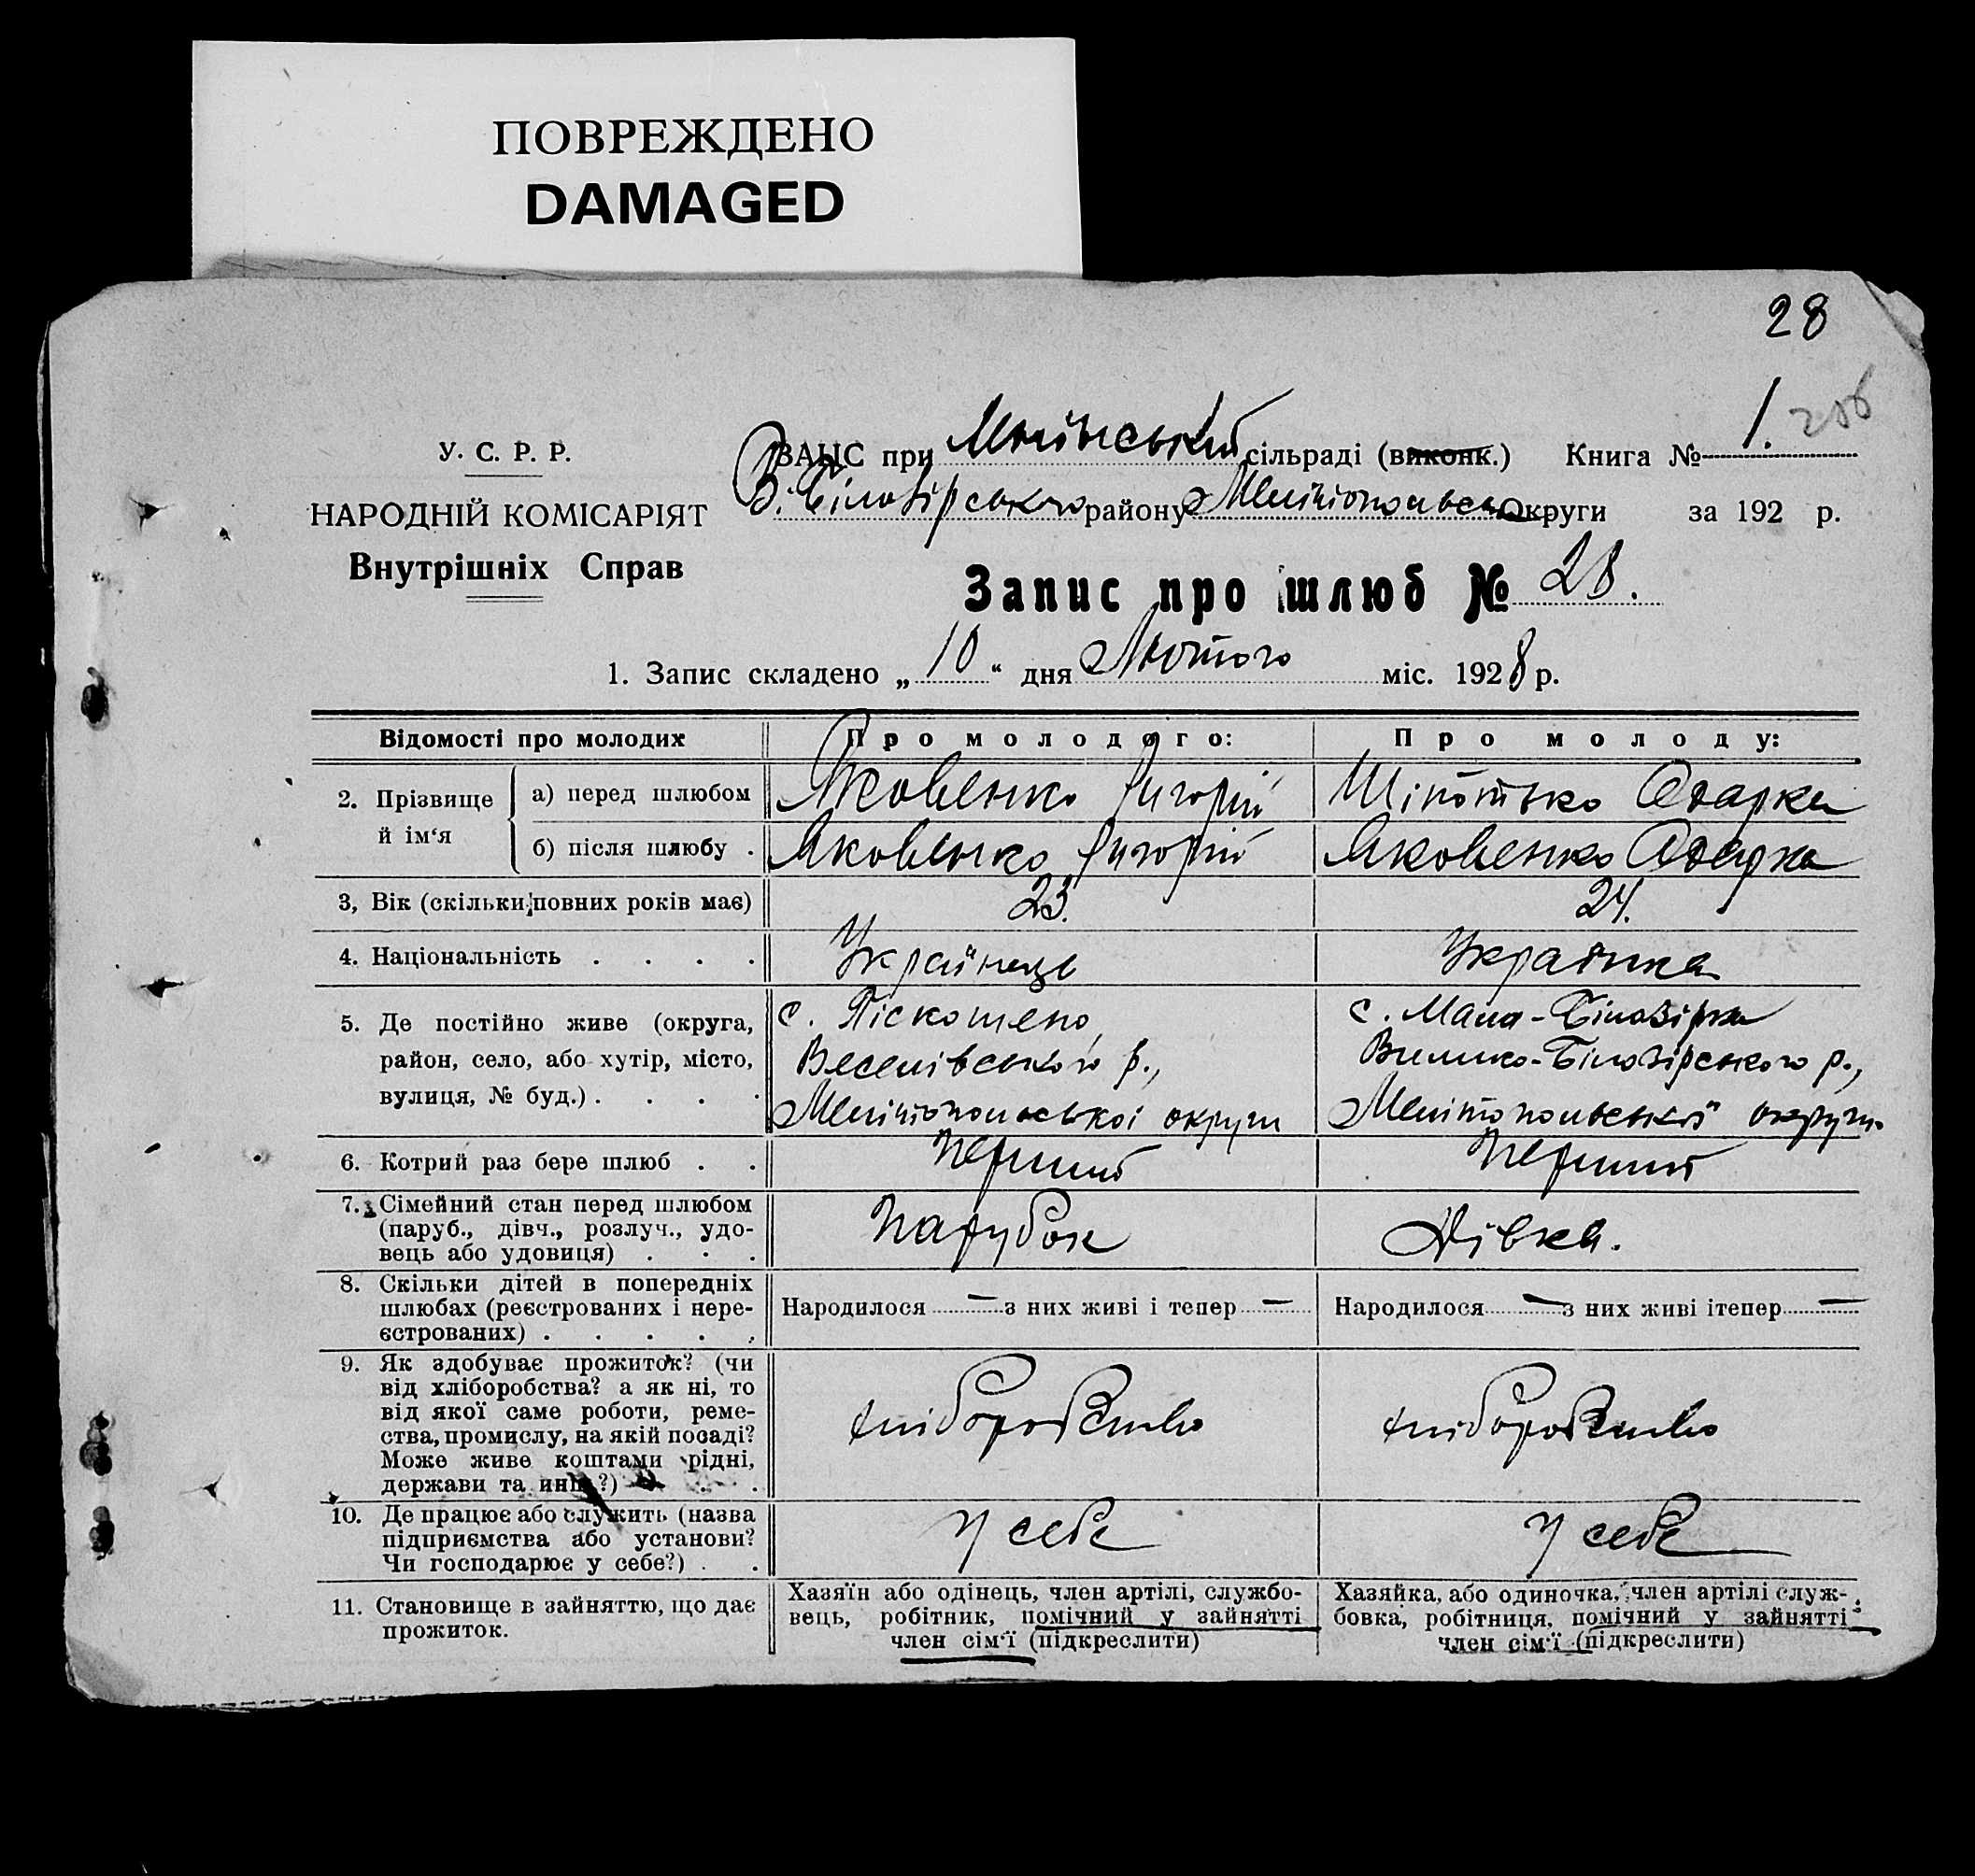 ПОВРЕЖДЕНО
DAMAGED
28
1.
У. С. Р. Р.
ЗАГС при сільраді (виконк.) Книга № 1.
НАРОДНІЙ КОМІСАРІЯТ
В. Білозірського району Мелітопольськ Округи за 192 р.
Внутрішніх Справ
Запис про шлюб № 28.
1. Запис складено „ 10 “ дня Лютого міс. 1928 р.
Відомості про молодих Про молодого: Про молоду:
2. Прізвище й ім‘я
а) перед шлюбом Яковенко Григорій Шіпотько Одарка
б) після шлюбу . Яковенко Григорій Яковенко Одарка
3, Вік (скільки повних років має) 23. 24.
4. Національність . . . . Українець Українка
5. Де постійно живе (округа,
район, село, або хутір, місто,
вулиця, № буд.) . . . .
с. Піскошено
Веселівського р.,
Мелітопольської округи
с. Мала-Білозірка
Вилико-Білозірського р.,
Мелітопольської округи
6. Котрий раз бере шлюб . . Перший Перший
7. Сімейний стан перед шлюбом
(паруб., дівч., розлуч., удо-
вець або удовиця) . . .
Парубок Дівка.
8. Скільки дітей в попередніх
шлюбах (реєстрованих і нере-
єстрованих) . . . . .
Народилося — з них живі і тепер — Народилося — з них живі ітепер —
9. Як здобуває прожиток? (чи
від хліборобства? а як ні, то
від якої саме роботи, реме-
ства, промислу, на якій посаді?
Може живе коштами рідні,
держави та инш.?) . .
хліборобство хліборобство
10. Де працює або служить (назва
підприємства або установи?
Чи господарює у себе?) . .
у себе у себе
11. Становище в зайняттю, що дає
прожиток.
Хазяїн або одінець, член артілі, службо-
вець, робітник, помічний у зайнятті
член сім‘ї (підкреслити)
Хазяйка, або одиночка, член артілі служ-
бовка, робітниця, помічний у зайнятті
член сім‘ї (підкреслити)